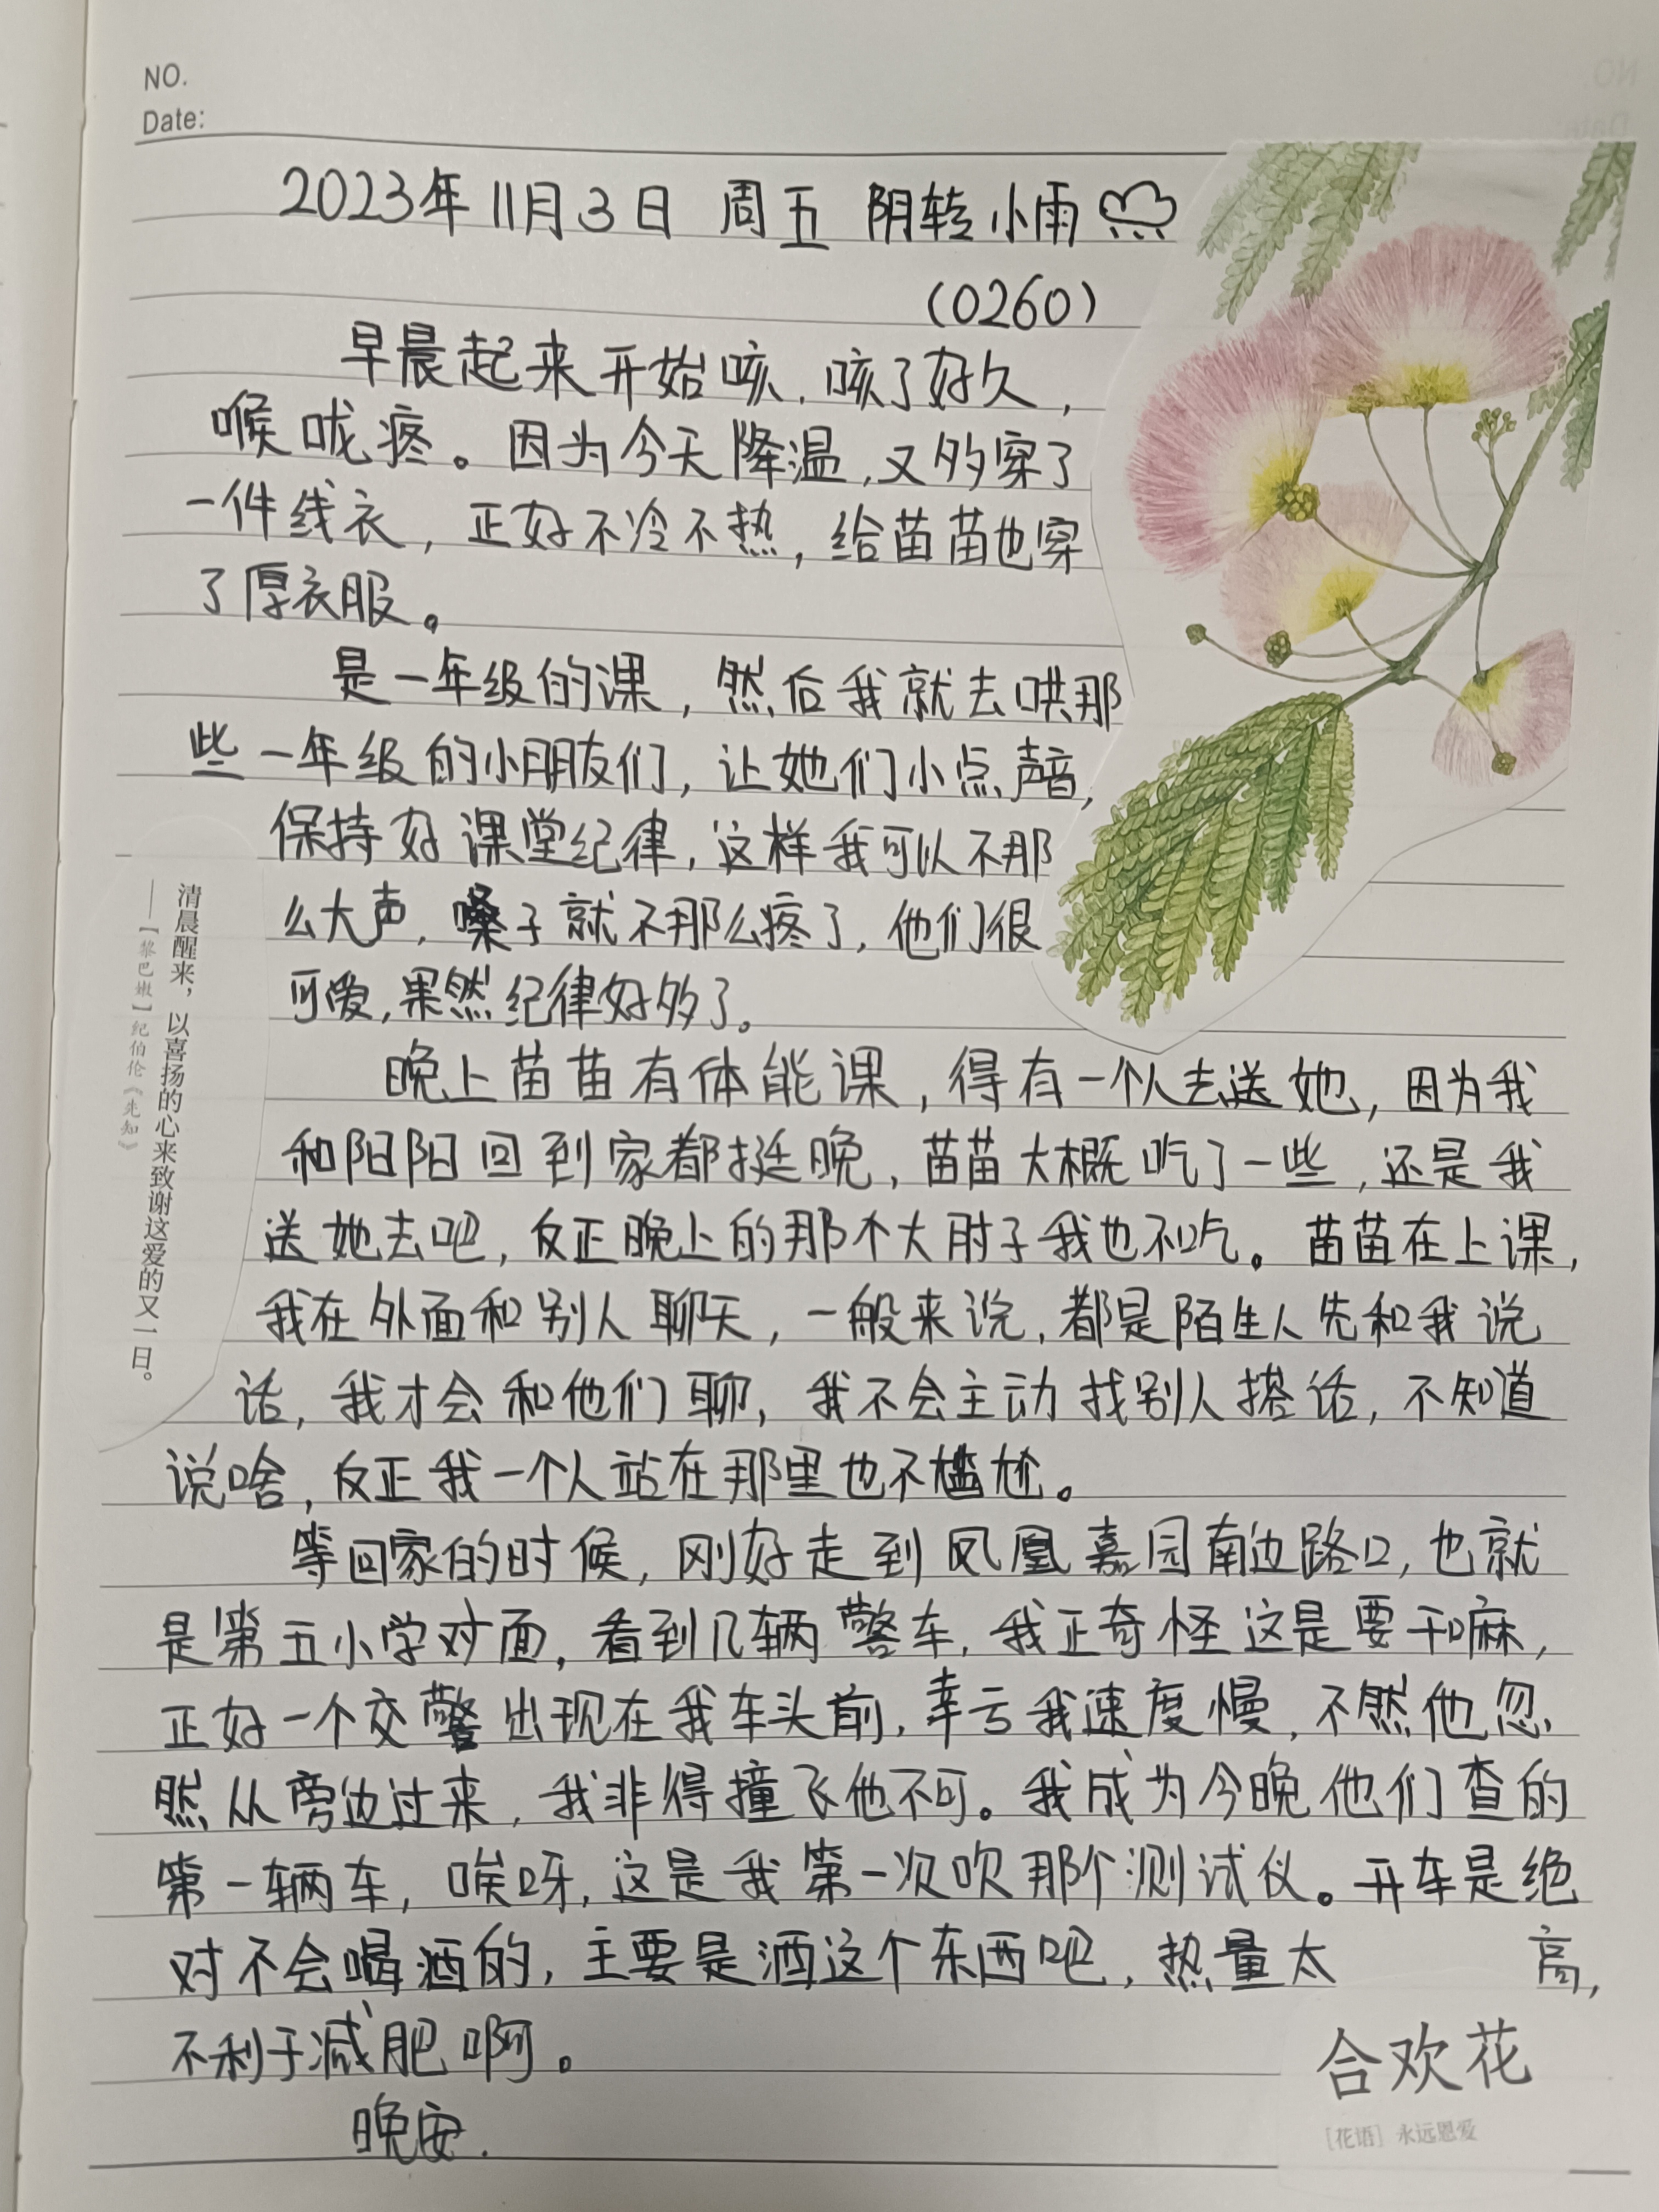 NO.
Date:
2023年11月3日 周五 阴转小雨
(0260)
早晨起来开始咳，咳了好久，
喉咙疼。因为今天降温，又多穿了
一件线衣，正好不冷不热，给苗苗也穿
了厚衣服。
是一年级的课，然后我就去哄那
些一年级的小朋友们，让她们小点声音，
保持好课堂纪律，这样我可以不那
么大声，嗓子就不那么疼了，他们很
可爱，果然纪律好多了。
晚上苗苗有体能课，得有一个人去送她，因为我
和阳阳回到家都挺晚，苗苗大概吃了一些，还是我
送她去吧，反正晚上的那个大肘子我也不吃。苗苗在上课，
我在外面和别人聊天，一般来说，都是陌生人先和我说
话，我才会和他们聊，我不会主动找别人搭话，不知道
说啥，反正我一个人站在那里也不尴尬。
等回家的时候，刚好走到凤凰嘉园南边路口，也就
是第五小学对面，看到几辆警车，我正奇怪这是要干嘛，
正好一个交警出现在我车头前，幸亏我速度慢，不然他忽
然从旁边过来，我非得撞飞他不可。我成为今晚他们查的
第一辆车，唉呀，这是我第一次吹那个测试仪。开车是绝
对不会喝酒的，主要是酒这个东西吧，热量太高，
不利于减肥啊。
晚安.
清晨醒来，以喜扬的心来致谢这爱的又一日。
——【黎巴嫩】纪伯伦《先知》
合欢花
[花语] 永远恩爱